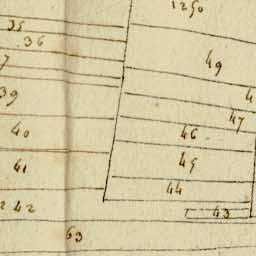 1250
35
36
49
7
39
4
47
40
46
41
45
44
42
43
63